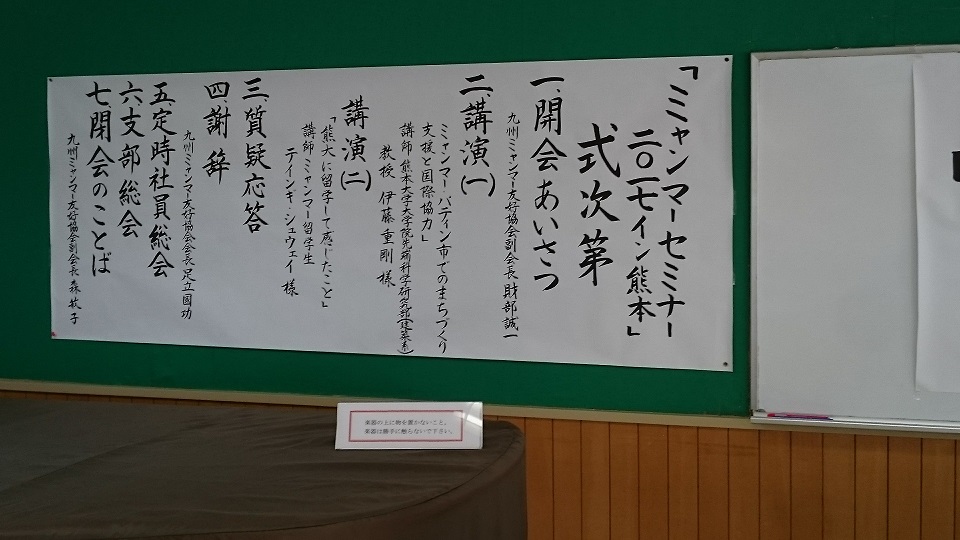 「ミャンマーセミナー
二〇一七イン熊本」
式次第
一、開会あいさつ
九州ミャンマー友好協会副会長 財部誠一
二、講演(一)
「ミャンマー・パティン市でのまちづくり
支援と国際協力」
講師 熊本大学大学院先端科学研究部(建築系)
教授 伊藤重剛 様
講演(二)
「熊大に留学して感じたこと」
講師 ミャンマー留学生
テインギ・シュウェイ 様
三、質疑応答
四、謝辞
九州ミャンマー友好協会会長 足立國功
五、定時社員総会
六、支部総会
七、閉会のことば
九州ミャンマー友好協会副会長 森 萩子
楽器の上に物を置かないこと。
楽器は勝手に触らないで下さい。